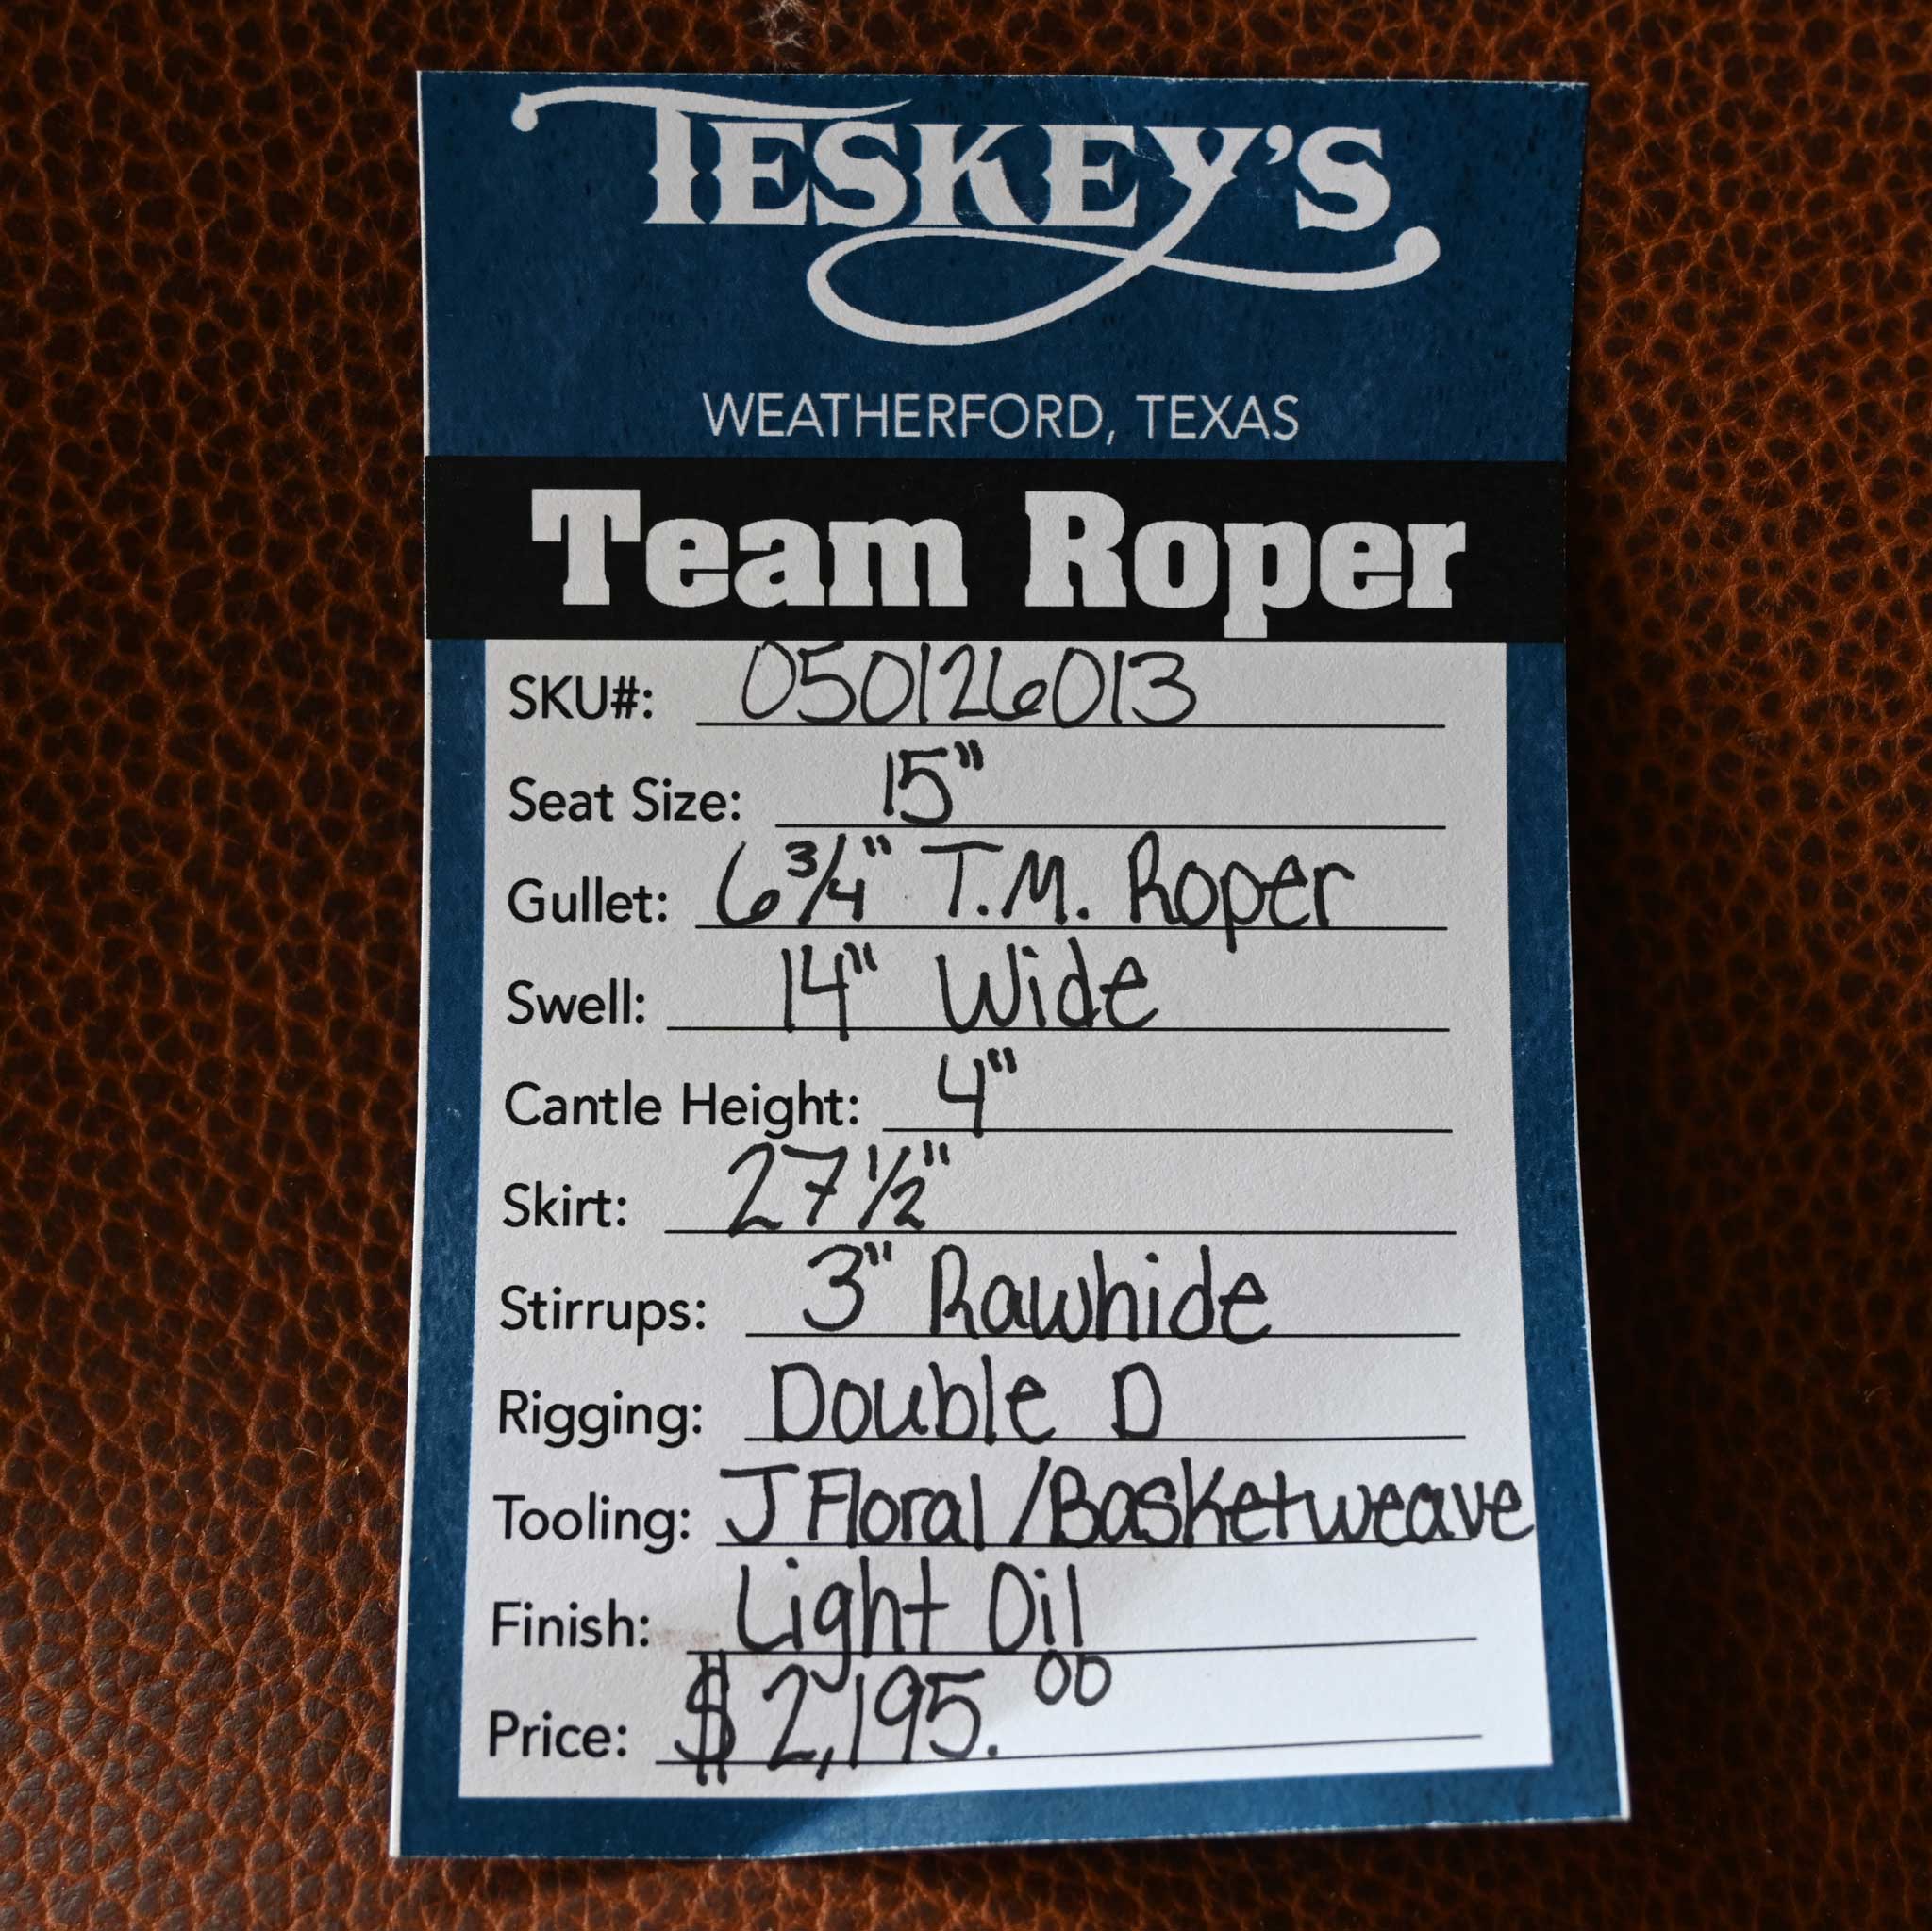 TESKEY'S
WEATHERFORD, TEXAS
Team Roper
SKU#: 050126013
Seat Size: 15"
Gullet: 6 3/4" T.M. Roper
Swell: 14" Wide
Cantle Height: 4"
Skirt: 27 1/2"
Stirrups: 3" Rawhide
Rigging: Double D
Tooling: J Floral/Basketweave
Finish: Light Oil
Price: $2,195.00